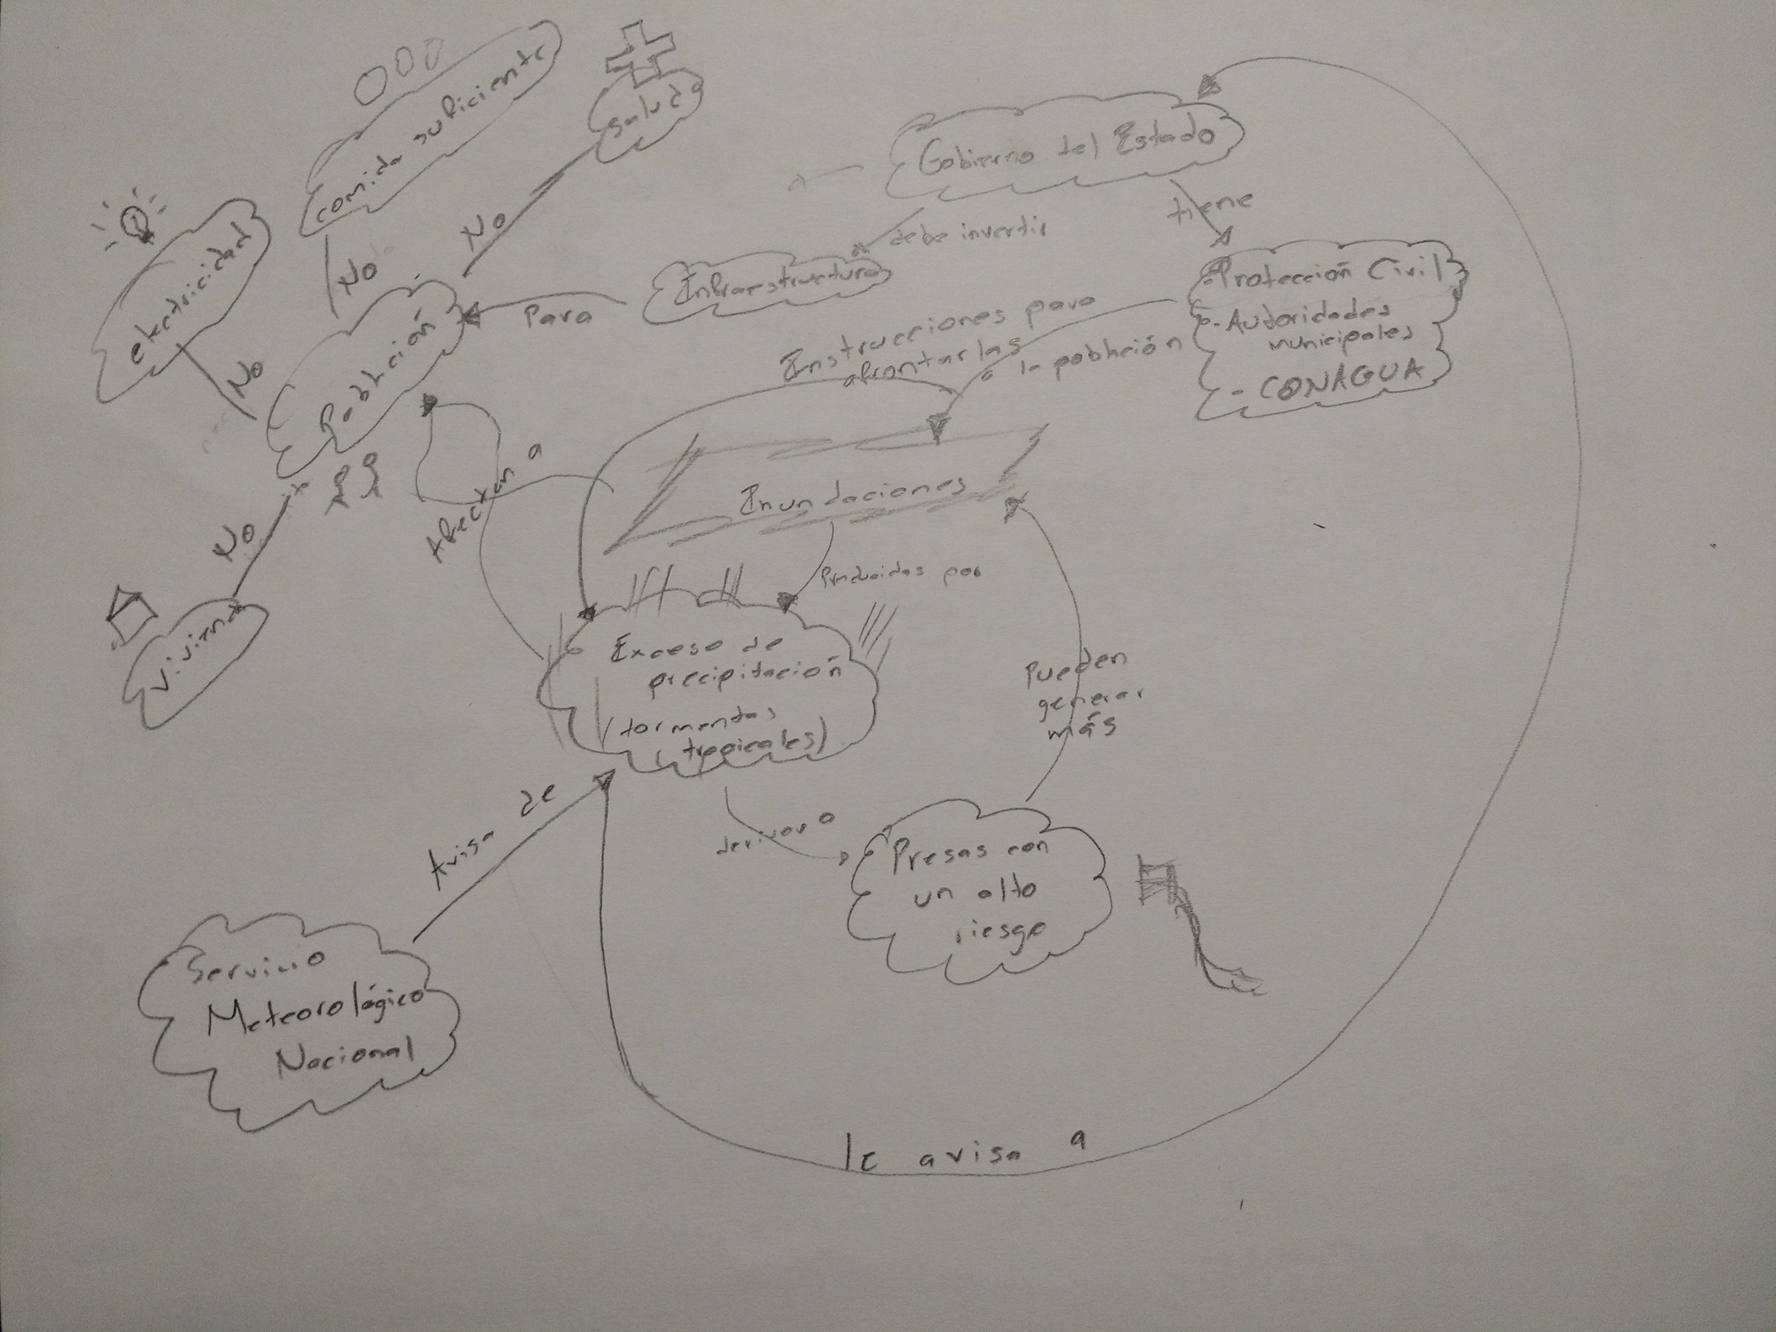 comida suficiente
salud
electricidad
No
No
No
Población
No
Vivienda
Gobierno del Estado
debe invertir
tiene
Infraestructura
Para
Protección Civil
- Autoridades
municipales
- CONAGUA
Instrucciones para
afrontarlas
a la población
Afectan a
Inundaciones
Producidas por
Exceso de
precipitación
(tormentas
tropicales)
Pueden
generar
más
Avisa de
derivar a
Presas con
un alto
riesgo
Servicio
Meteorológico
Nacional
le avisa a